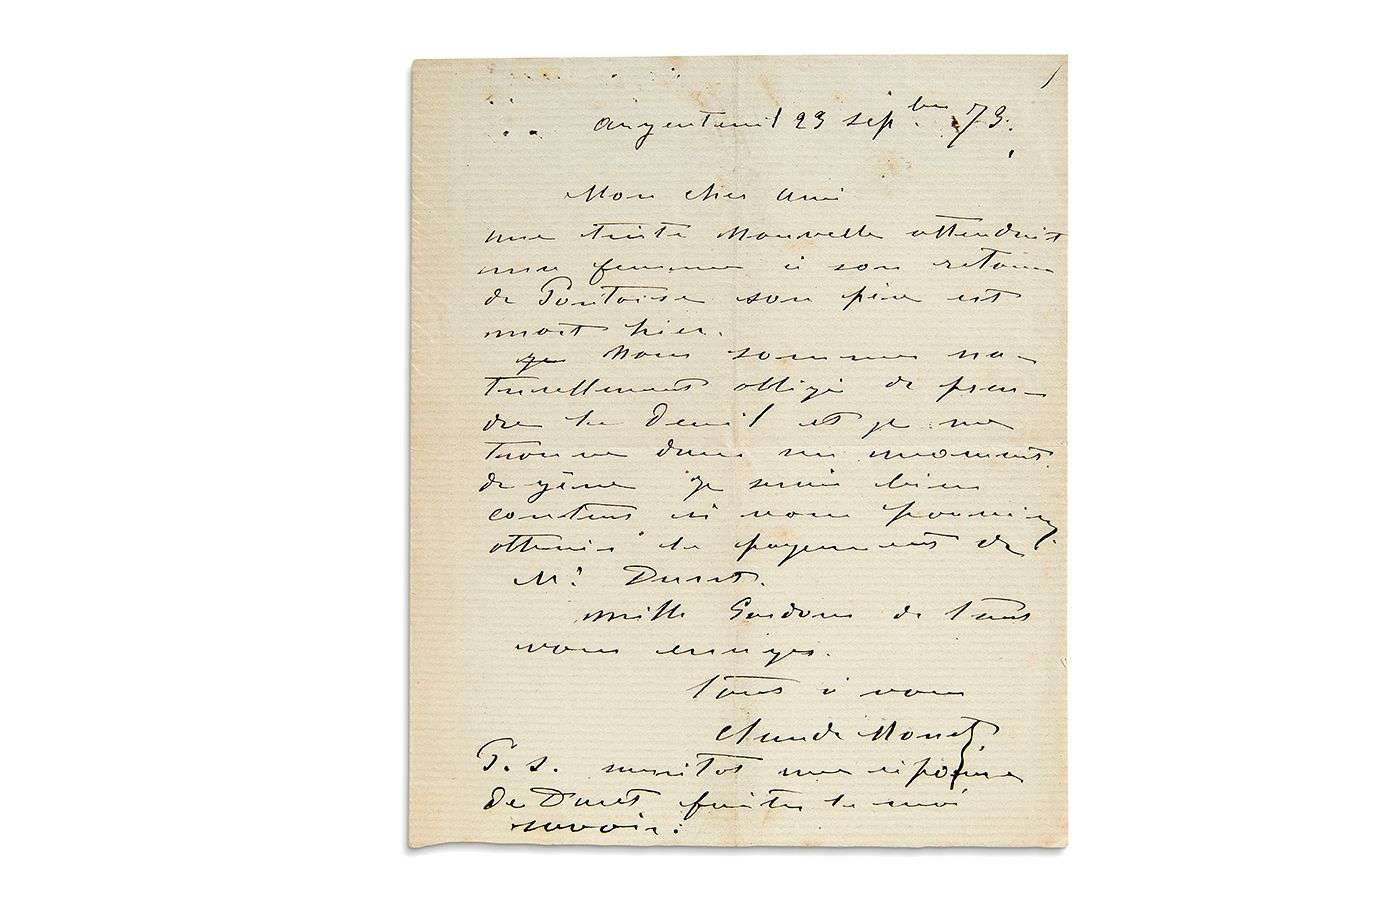 argenteuil 23 sep.bre 73.
Mon cher ami
une triste Nouvelle attendait
ma femme à son retour
de Pontoise son père est
mort hier.
je Nous sommes na-
turellement obligé de pren-
dre le Deuil et je me
trouve dans un moment
de gêne je serais bien
content si vous pouviez
obtenir le payement de
Mr. Duret.
mille Pardons de tant
vous ennuyer.
tout à vous
Claude Monet
P. S. aussitot une réponse
De Duret faites le moi
savoir.